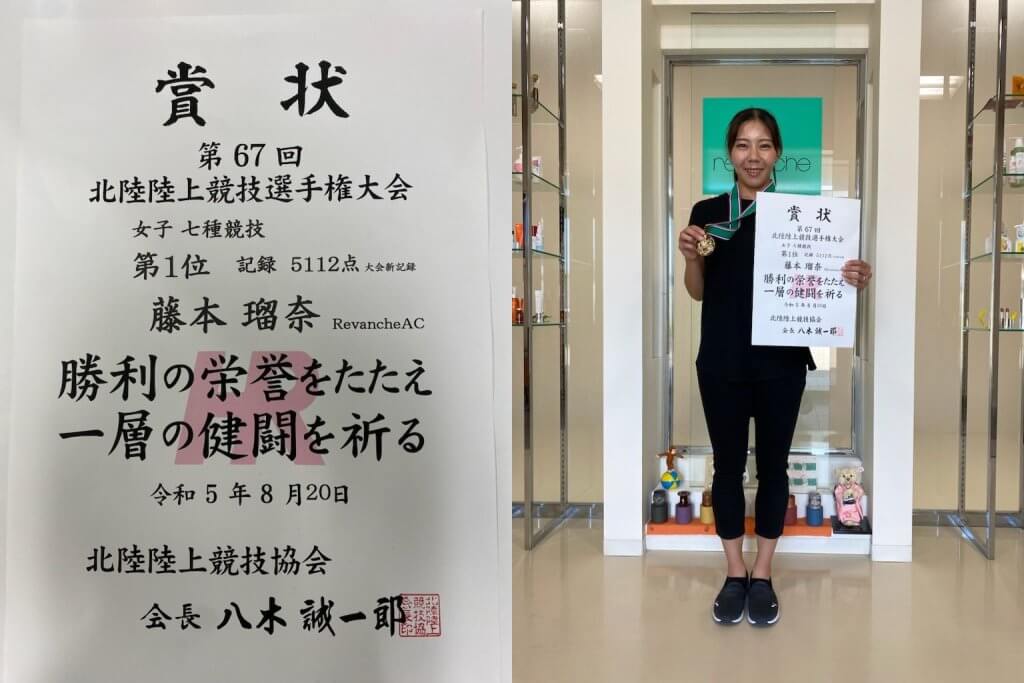 賞 状
第 67 回
北陸陸上競技選手権大会
女子 七種競技
第1位 記録 5112点 大会新記録
藤本 瑠奈 RevancheAC
勝利の栄誉をたたえ
一層の健闘を祈る
令和 5 年 8 月20日
北陸陸上競技協会
会長 八木 誠一郎
賞 状
第 67 回
北陸陸上競技選手権大会
女子 七種競技
第1位 記録 5112点
藤本 瑠奈
勝利の栄誉をたたえ
一層の健闘を祈る
令和 5 年 8 月20日
北陸陸上競技協会
会長 八木 誠一郎